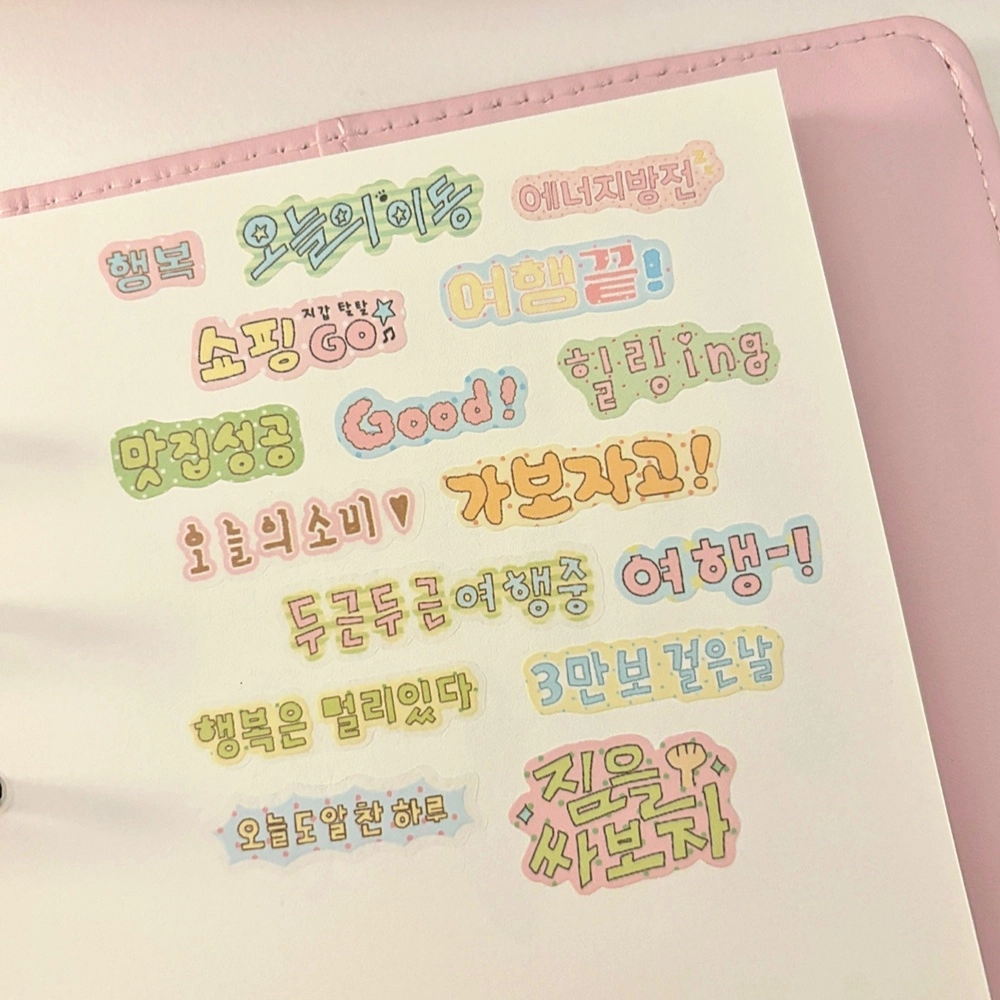 오늘의이동
에너지방전 zz
행복
여행끝!
지갑 탈탈
쇼핑GO!
힐링ing
Good!
맛집성공
가보자고!
오늘의소비
여행-!
두근두근여행중
3만보 걸은날
행복은 멀리있다
짐을
싸보자
오늘도알찬하루